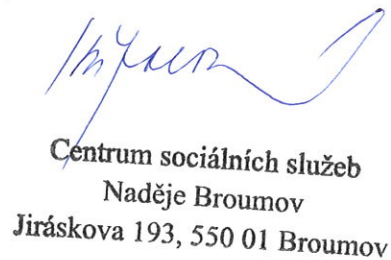 Centrum sociálních služeb
Naděje Broumov
Jiráskova 193, 550 01 Broumov